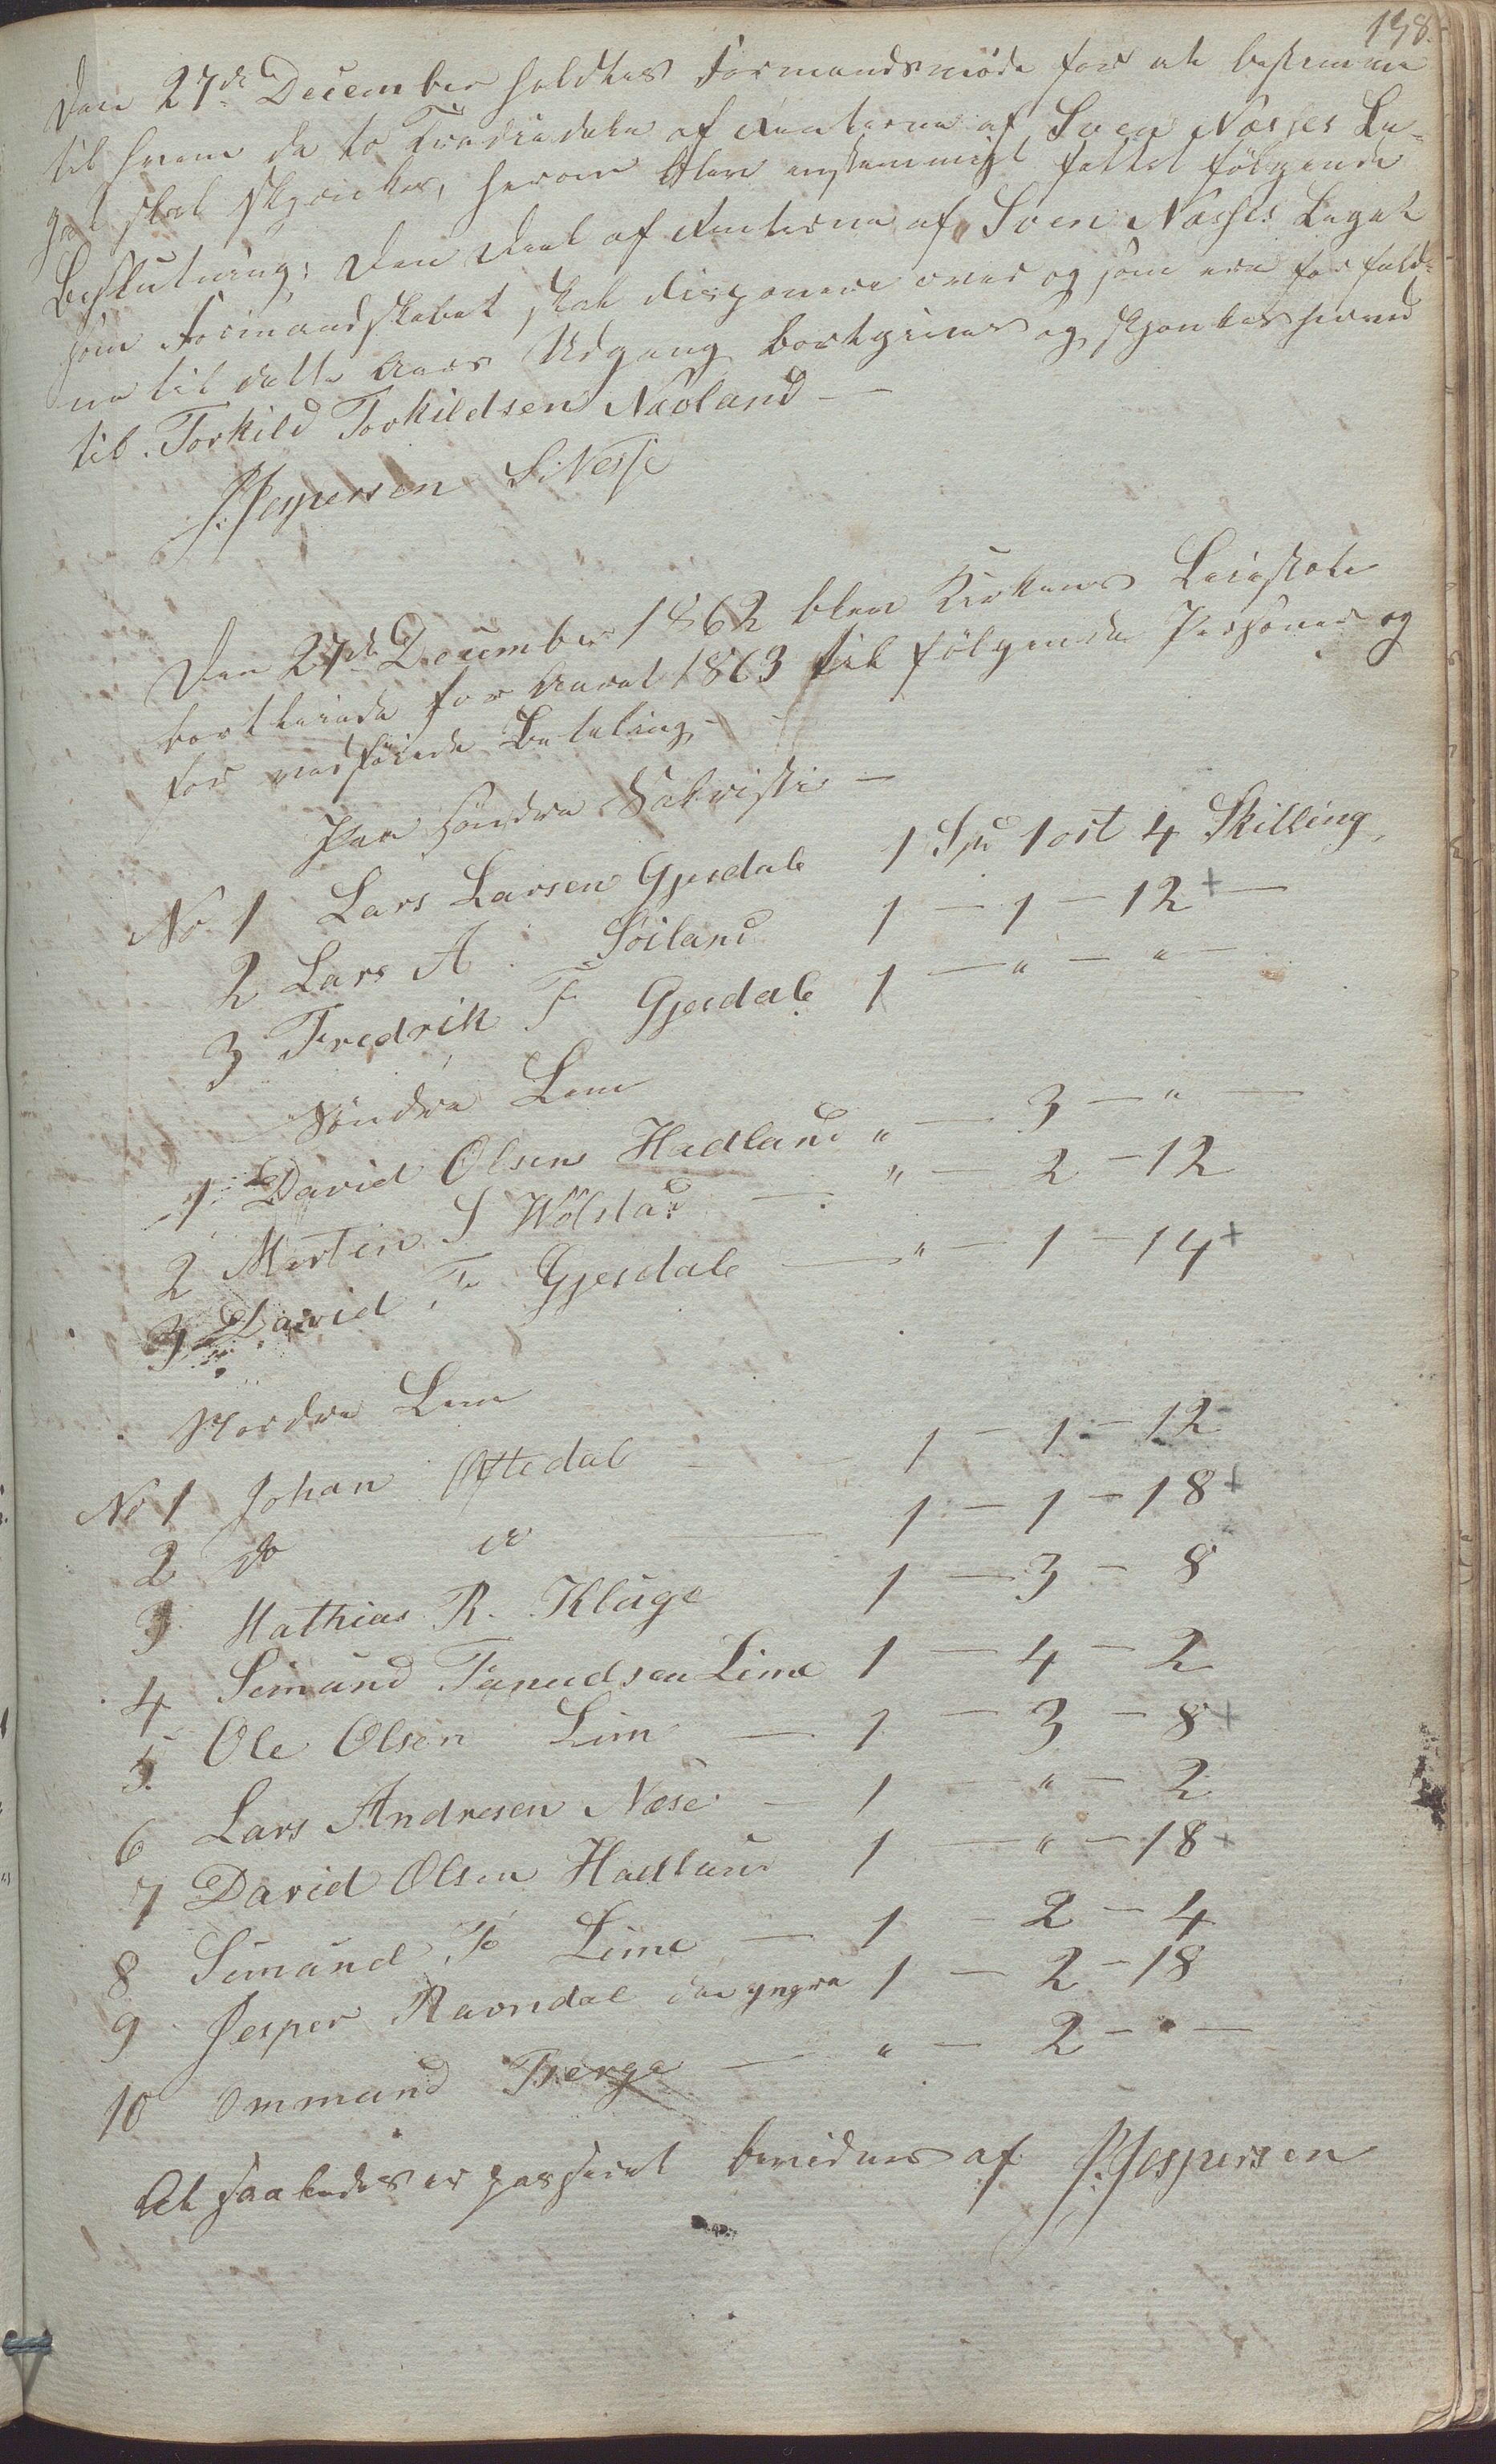 158.
Den 27de December holdtes Formandsmöde for at bestemme
til hvem de to Trediedele af Renterne af Sven Næsses Le-
gat skal skjænkes, herom blev enstemmigt fattet følgende
Beslutning: Den Deel af Renterne af Sven Næsses Legat
som Formandskabet skal disponere over og som ere forfald-
ne til dette Aars Udgang bortgives og skjænkes herved
til Torkild Torkildsen Næoland —
J. Jespersen S. Nesse
Den 27de December 1862 blev Kirkens Leiestole
bortleiede for Aaret 1863 til følgende Personer og
for vedføiede Betaling
Paa Söndre Sakristie —
No 1 Lars Larsen Gjesdale 1 Spd 1 ort 4 Skilling,
2 Lars A. Soiland 1 — 1 — 12 + —
3 Fredrik F Gjesdale 1 — " — " —
Söndre Lem
1 David Olsen Hadland " — 3 — " —
2 Mortin S Wölstad — " — 2 — 12
3 David F. Gjesdale — " — 1 — 14 +
Nordre Lem
No 1 Johan Oftedal — 1 — 1 — 12
2 do do — 1 — 1 — 18 +
3 Mathias R. Kluge 1 — 3 — 8
4 Simund Tanudsen Lime 1 — 4 — 2
5 Ole Olsen Lim — 1 — 3 — 8 +
6 Lars Andresen Nese — 1 — " — 2
7 David Olsen Hadland 1 — " — 18 +
8 Simund T. Lime — 1 — 2 — 4
9 Jesper Ravndal den yngre 1 — 2 — 18
10 Ommund Berge — " — 2 — " —
At saaledes er passeret bevidnes af J. Jespersen